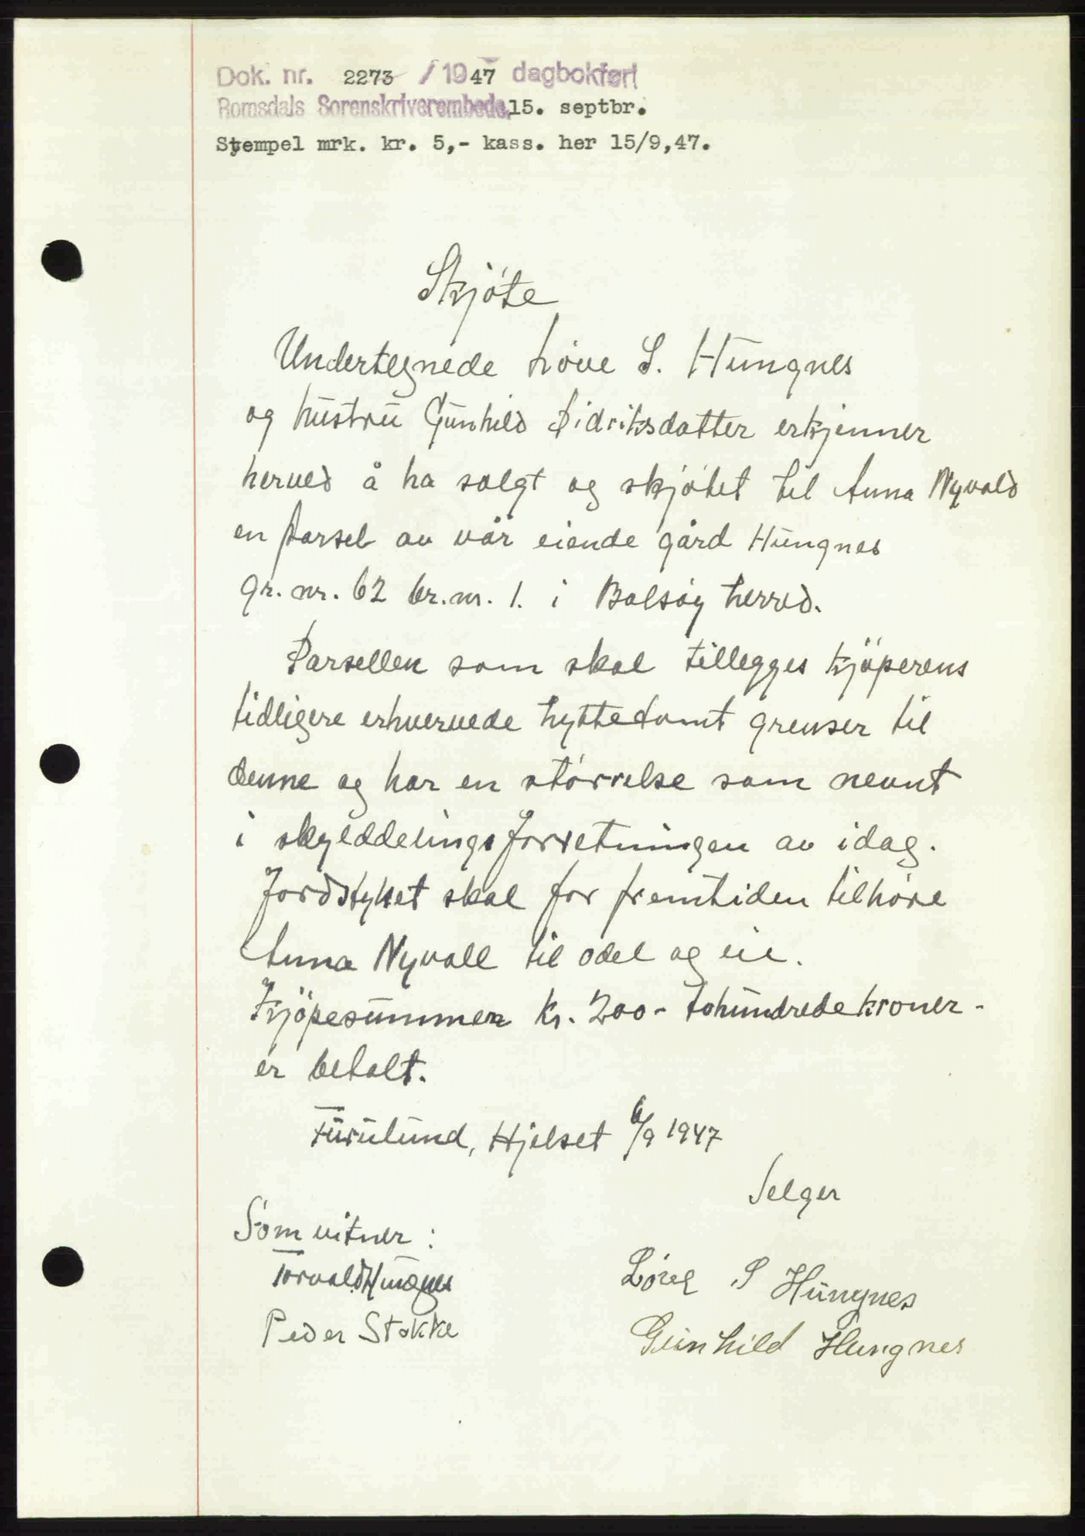 Dok. nr. 2273 / 1947 dagbokført
Romsdals Sorenskriverembede, 15. septbr.
Stempel mrk. kr. 5,- kass. her 15/9,47.
Skjøte
Undertegnede Løve S. Hungnes
og hustru Gunhild Didriksdatter erkjenner
herved å ha solgt og skjøtet til Anna Nyvold
en parsel av vår eiende gård Hungnes
gr. nr. 62 br. nr. 1. i Bolsøy herred.
Parsellen som skal tillegges kjøperens
tidligere erhvervede hyttetomt grenser til
denne og har en størrelse som nevnt
i skylddelingsforretningen av idag.
Jordstyket skal for fremtiden tilhøre
Anna Nyvoll til odel og eie.
Kjøpesummen kr. 200 - tohundredekroner -
er betalt.
Furulund, Hjelset 6/9 1947
Selger
Som vitner :
Torvald Hungnes
Peder Stokke
S Hungnes
Gunhild Hungnes